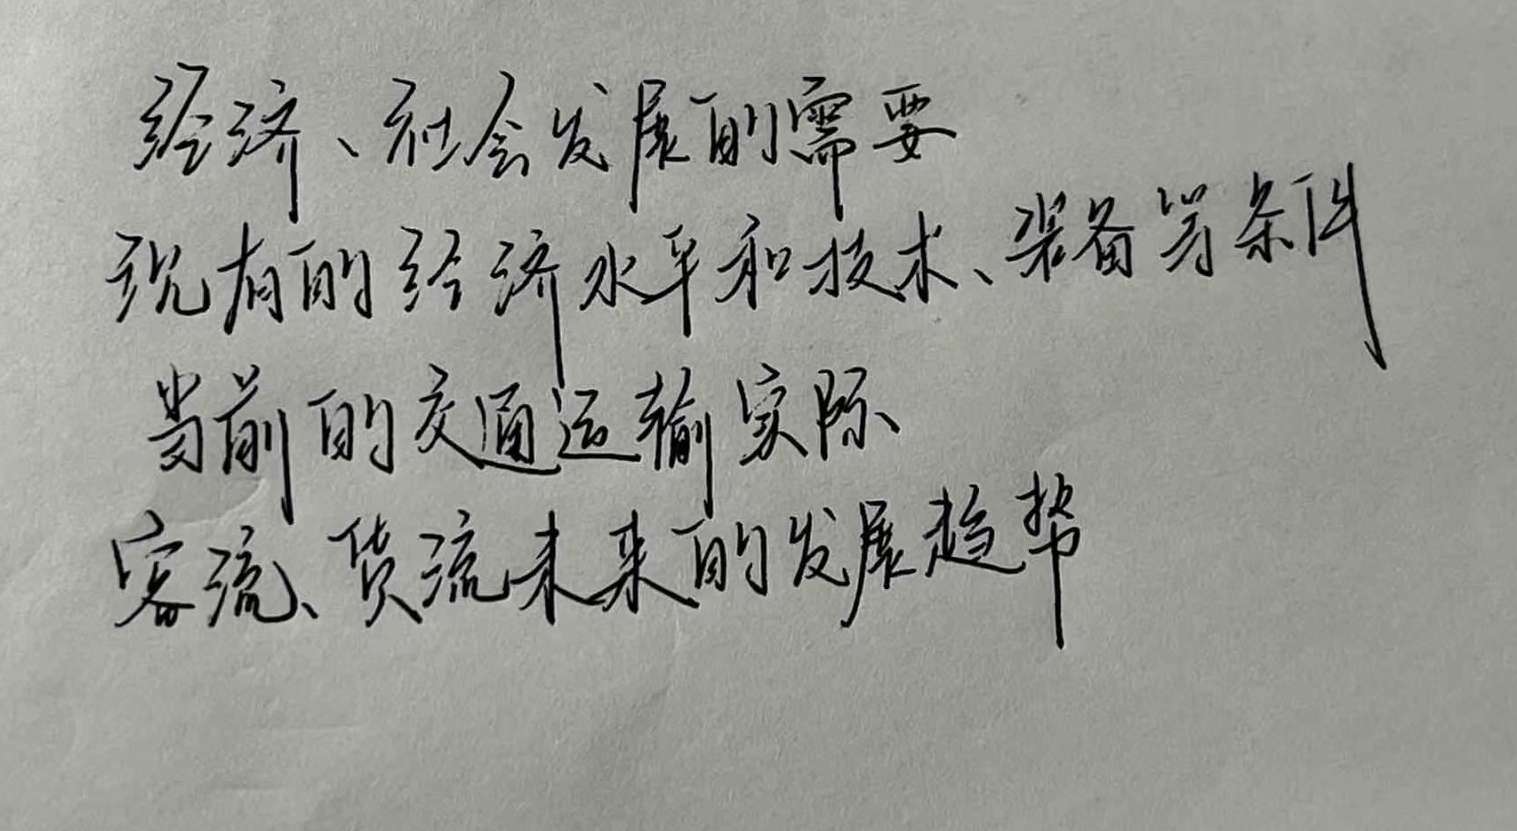 经济、社会发展的需要
现有的经济水平和技术、装备等条件
当前的交通运输实际
客流、货流未来的发展趋势